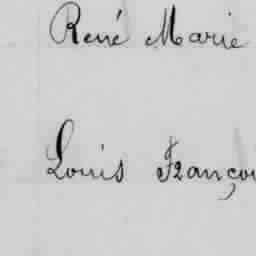 René Marie
Louis Françoi